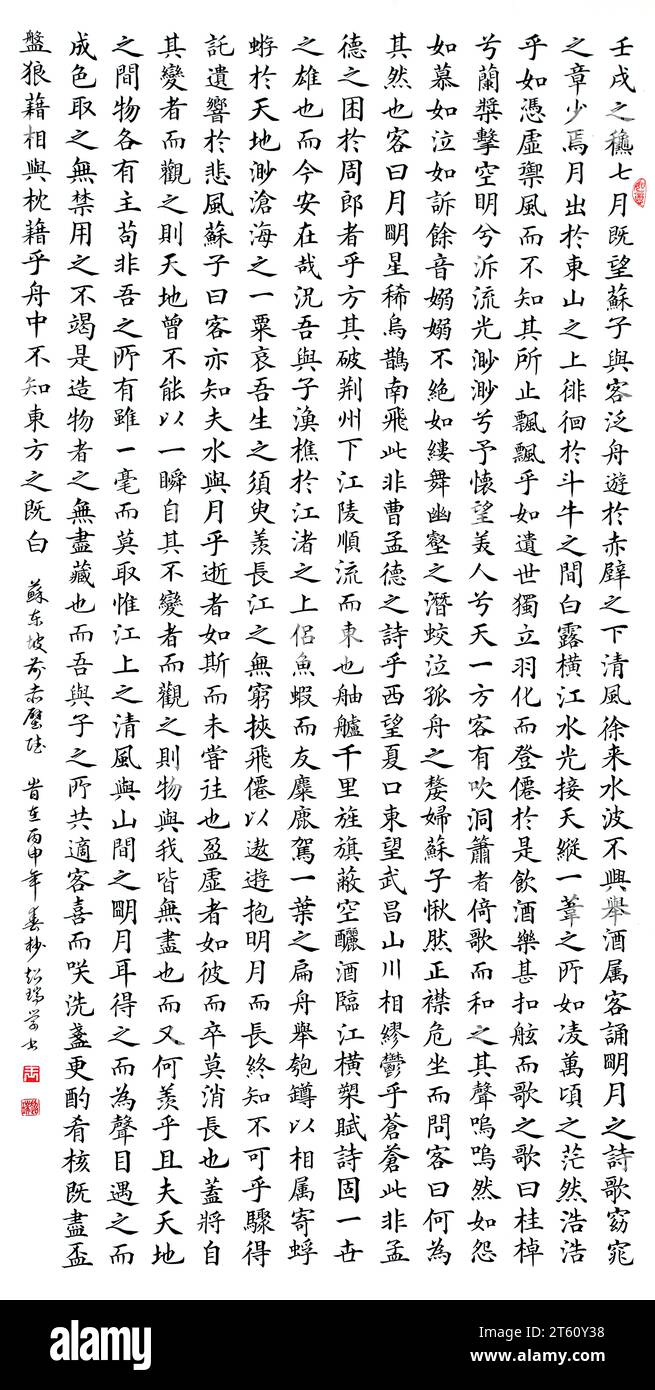 壬戌之龝七月既望蘇子與客泛舟遊於赤壁之下清風徐来水波不興舉酒属客誦朙月之詩歌窈窕
之章少焉月出於東山之上徘徊於斗牛之間白露橫江水光接天縱一葦之所如凌萬頃之茫然浩浩
乎如憑虛禦風而不知其所止飄飄乎如遺世獨立羽化而登僊於是飲酒樂甚扣舷而歌之歌曰桂棹
兮蘭槳擊空明兮泝流光渺渺兮予懷望美人兮天一方客有吹洞簫者倚歌而和之其聲嗚嗚然如怨
如慕如泣如訴餘音嫋嫋不絕如縷舞幽壑之潛蛟泣孤舟之嫠婦蘇子愀然正襟危坐而問客曰何為
其然也客曰月朙星稀烏鵲南飛此非曹孟德之詩乎西望夏口東望武昌山川相繆鬱乎蒼蒼此非孟
德之困於周郎者乎方其破荆州下江陵順流而東也舳艫千里旌旗蔽空釃酒臨江橫槊賦詩固一世
之雄也而今安在哉況吾與子漁樵於江渚之上侶魚蝦而友麋鹿駕一葉之扁舟舉匏罇以相属寄蜉
蝣於天地渺滄海之一粟哀吾生之須臾羨長江之無窮挾飛僊以遨遊抱明月而長終知不可乎驟得
託遺響於悲風蘇子曰客亦知夫水與月乎逝者如斯而未嘗往也盈虛者如彼而卒莫消長也蓋將自
其變者而觀之則天地曾不能以一瞬自其不變者而觀之則物與我皆無盡也而又何羨乎且夫天地
之間物各有主苟非吾之所有雖一毫而莫取惟江上之清風與山間之朙月耳得之而為聲目遇之而
成色取之無禁用之不竭是造物者之無盡藏也而吾與子之所共適客喜而咲洗盞更酌肴核既盡盃
盤狼藉相與枕藉乎舟中不知東方之既白 蘇东坡前赤壁賦 丙申年春杪
alamy
Image ID: 2T60Y38
www.alamy.com